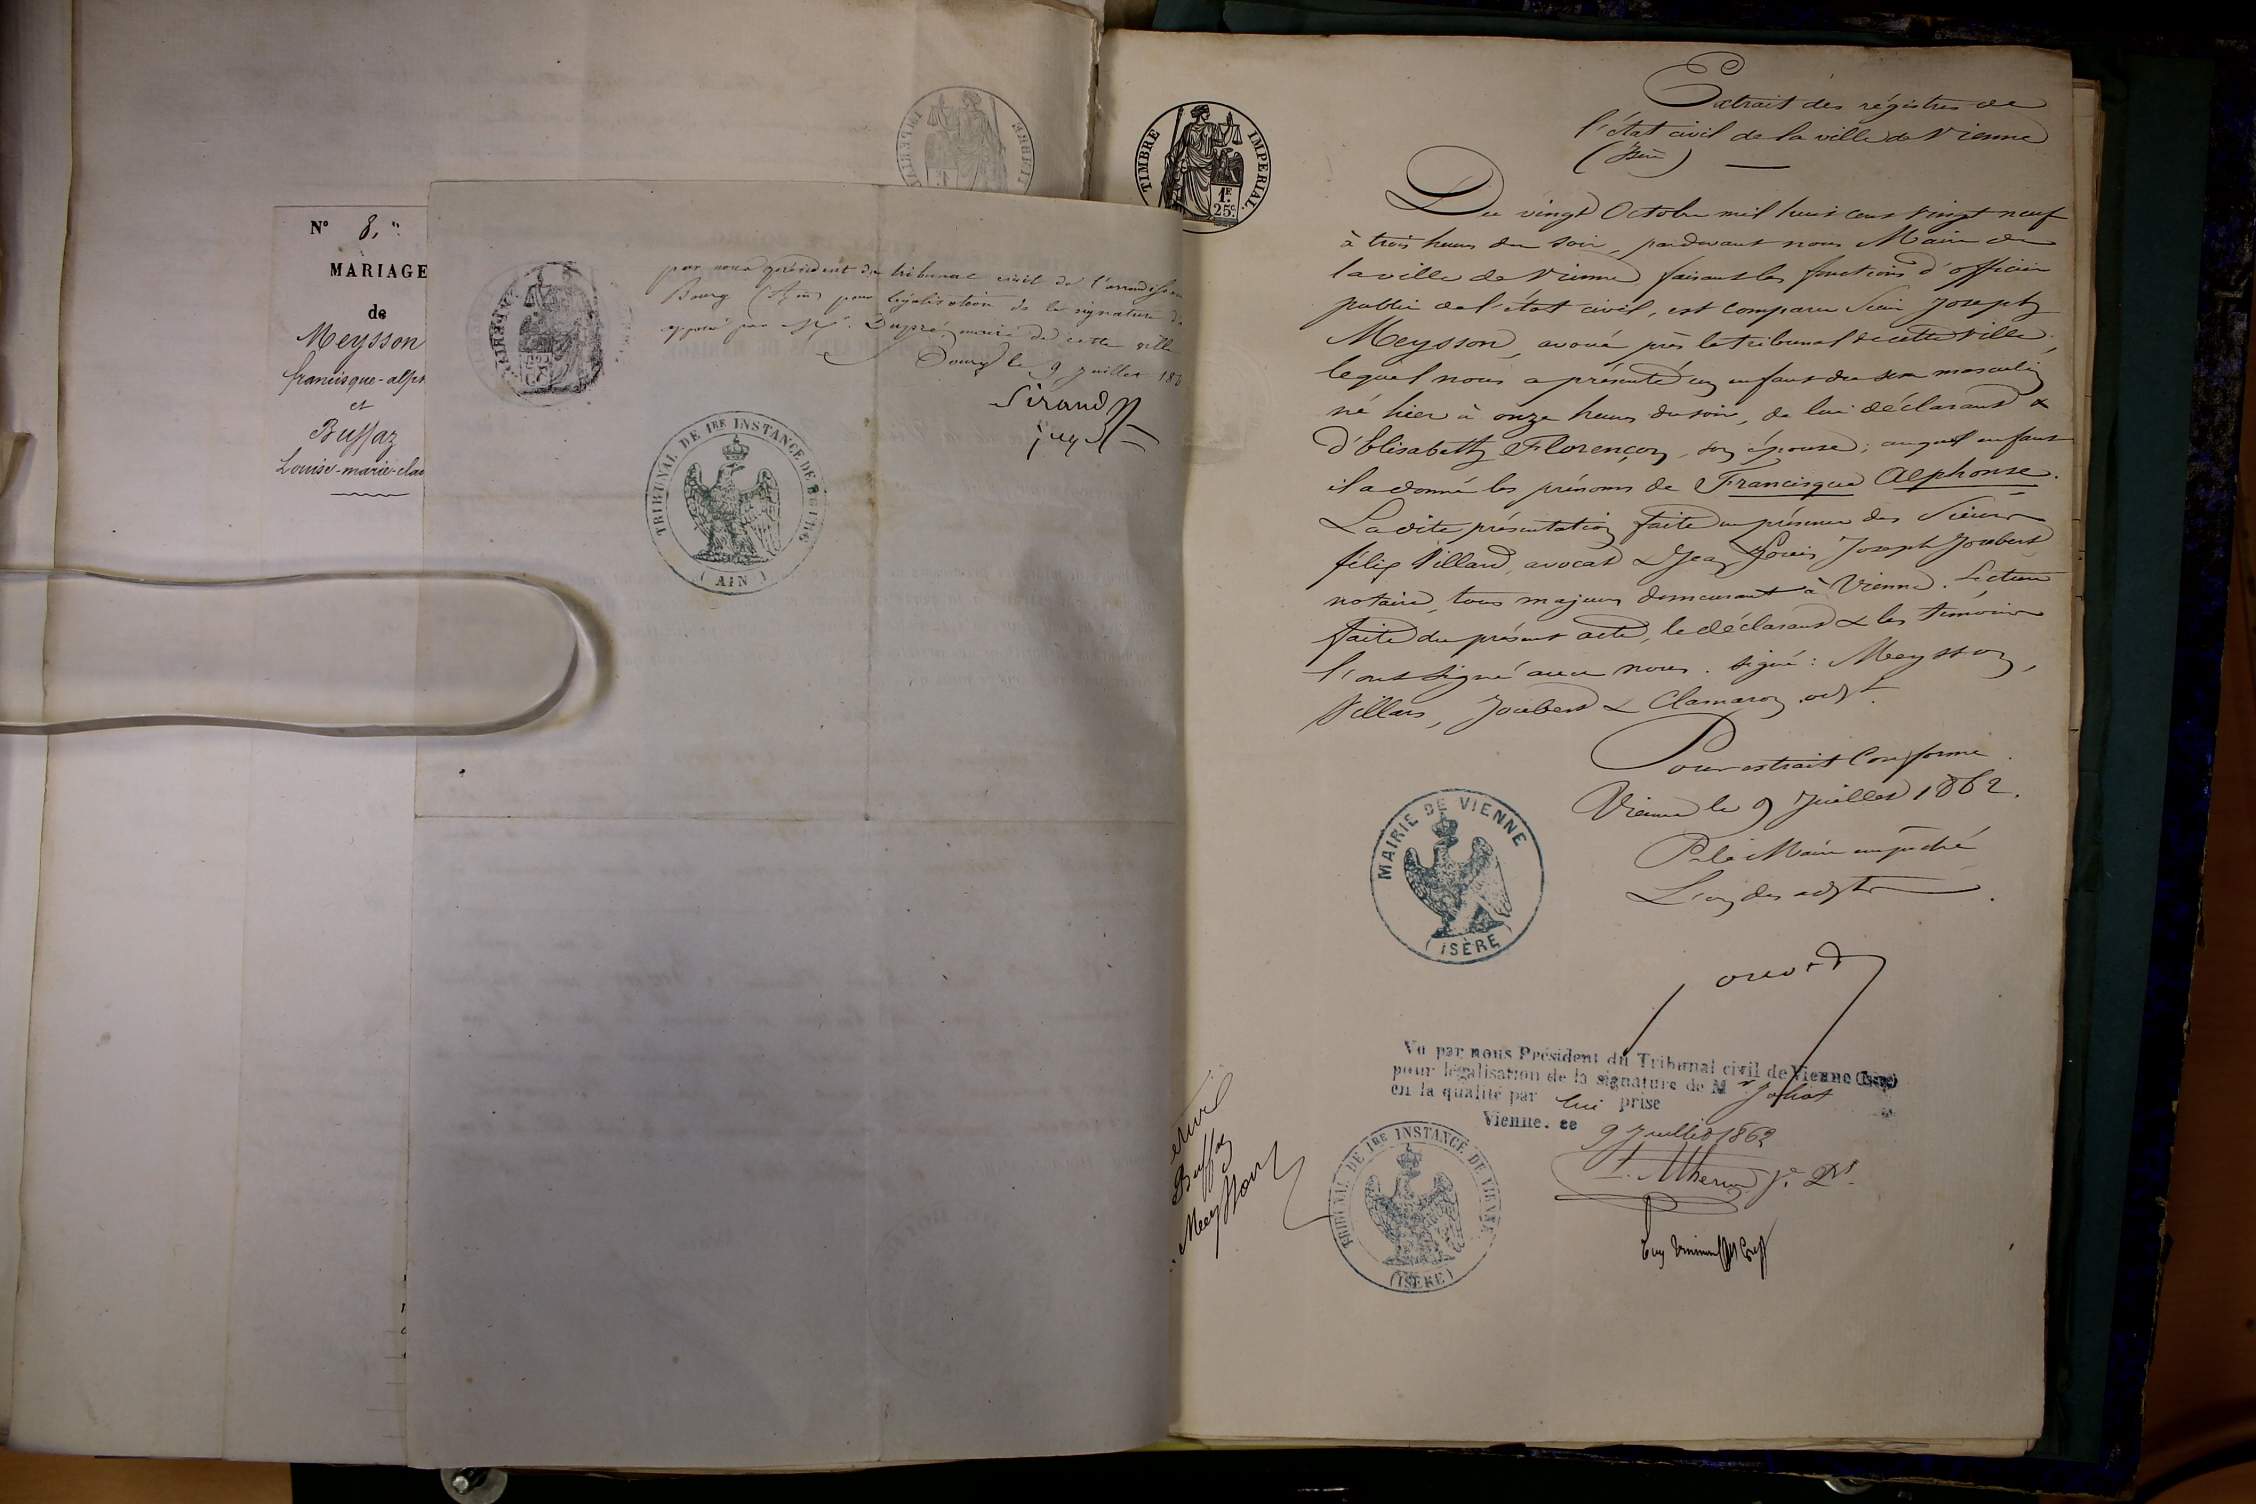 N° 8."
MARIAGE
de
Meysson
francisque-alph
et
Buffaz
Louise-marie-clau
par nous président du tribunal civil de l'arrondissem
Bourg (Ain) pour légalisation de la signature
apposé par Mr. Dupré maire de cette ville
Bourg le 9 juillet 186
Sirand
juge
TRIBUNAL DE 1RE INSTANCE DE BOURG
(AIN)
TIMBRE IMPERIAL.
1F.
25c.
Extrait des régistres de
l'état civil de la ville de Vienne
(Isère)
Du vingt Octobre mil huit cent vingt neuf
à trois heures du soir, pardevant nous Maire de
la ville de Vienne faisant les fonctions d'officier
public de l'état civil, est comparu Sieur Joseph
Meysson, avoué près le tribunal de cette ville,
lequel nous a présenté un enfant du sexe masculin
né hier à onze heures du soir, de lui déclarant &
d'Elisabeth Florençon, son épouse; auquel enfant
il a donné les prénoms de Francisque Alphonse.
La dite présentation faite en présence des Sieurs
félix Villard, avocat & Jean Louis Joseph Joubert
notaire, tous majeurs demeurant à Vienne. Lecture
faite du présent acte, le déclarant & les témoins
l'ont signé avec nous. Signé: Meysson,
Villars, Joubert & Clamaron adjt.
Pour extrait Conforme.
Vienne le 9 Juillet 1862.
Pr. le Maire empêché
L'un des adjts
MAIRIE DE VIENNE
(ISÈRE)
Vu par nous Président du Tribunal civil de Vienne (Isère)
pour légalisation de la signature de Mr
en la qualité par lui prise
Vienne, ce 9 Juillet 1862
TRIBUNAL DE 1RE INSTANCE DE VIENNE
(ISÈRE)
Buffaz
Meysson